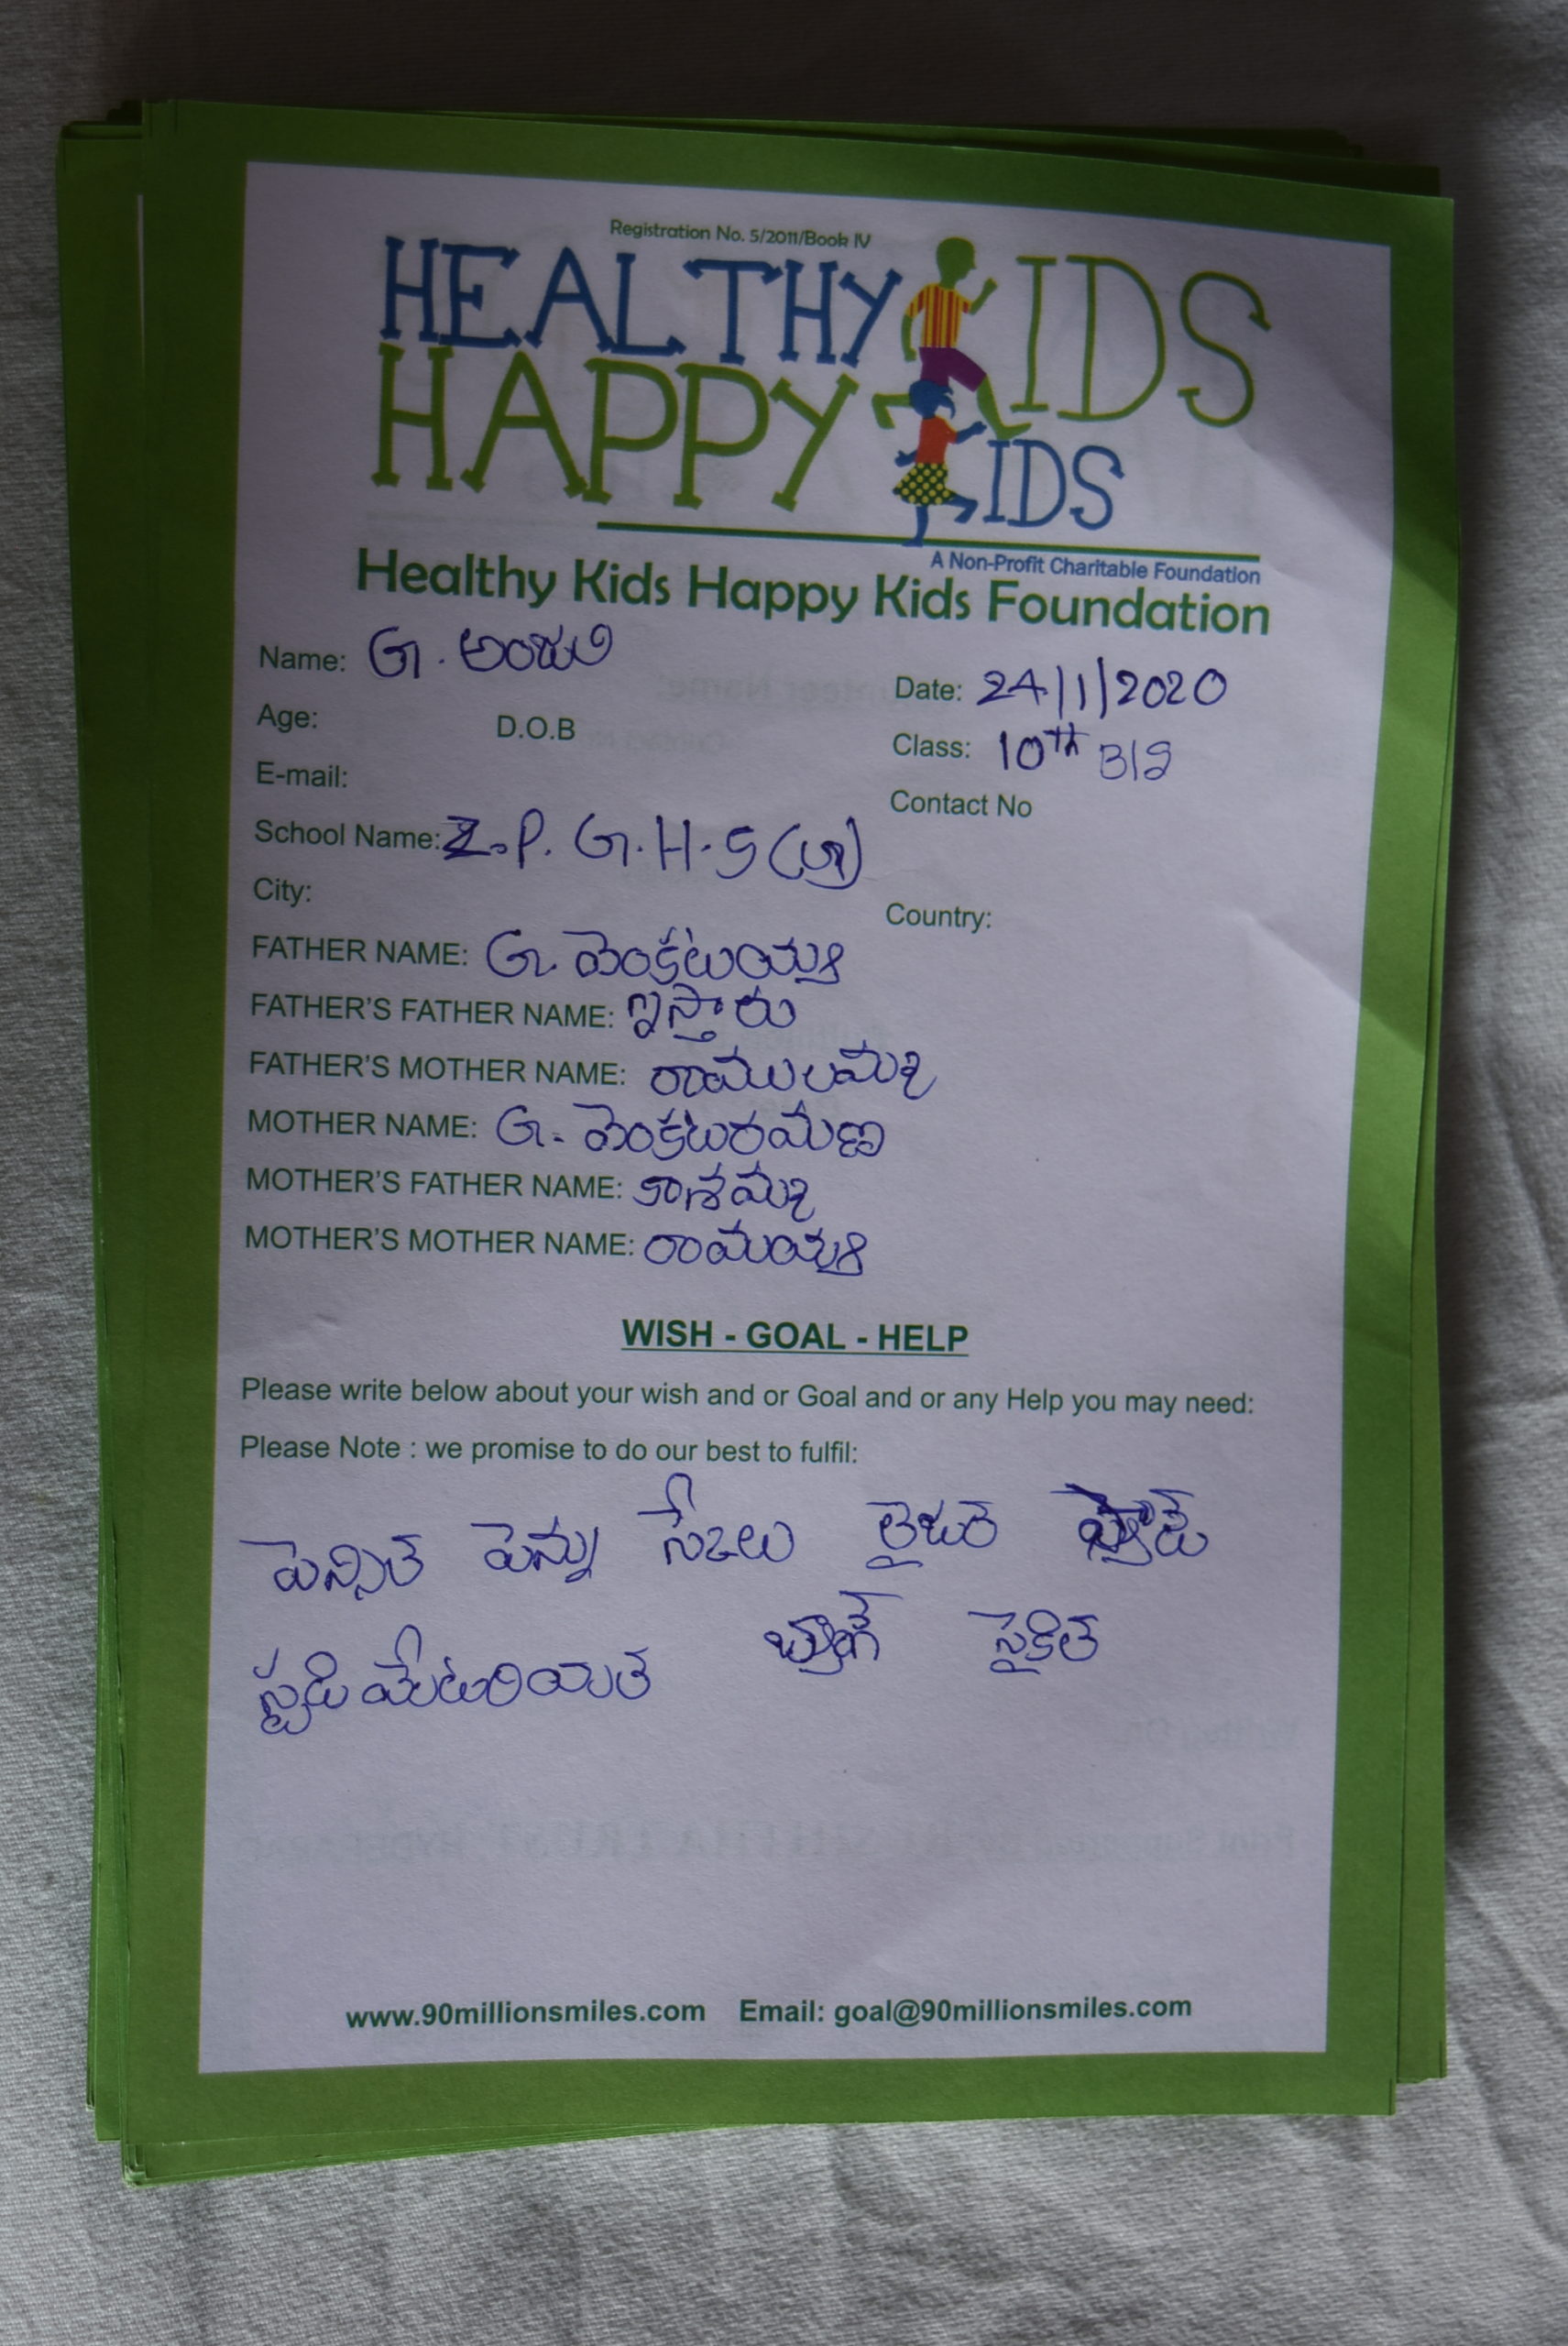 Registration No. 5/2011/Book IV
HEALTHY KIDS
HAPPY KIDS
A Non-Profit Charitable Foundation
Healthy Kids Happy Kids Foundation
Name: G. అంజలి
Date: 24/1/2020
Age: D.O.B
Class: 10th
E-mail:
Contact No
School Name: Z.P. G.H.S
City:
Country:
FATHER NAME: G. వెంకటయ్య
FATHER'S FATHER NAME:
FATHER'S MOTHER NAME: రాములమ్మ
MOTHER NAME: G. వెంకటరమణ
MOTHER'S FATHER NAME: కాశమ్మ
MOTHER'S MOTHER NAME: రామయ్య
WISH - GOAL - HELP
Please write below about your wish and or Goal and or any Help you may need:
Please Note : we promise to do our best to fulfil:
పెన్సిల్ పెన్ను స్కేలు
స్టడి మేటరియల్ బ్యాగ్ సైకిల్
www.90millionsmiles.com Email: goal@90millionsmiles.com